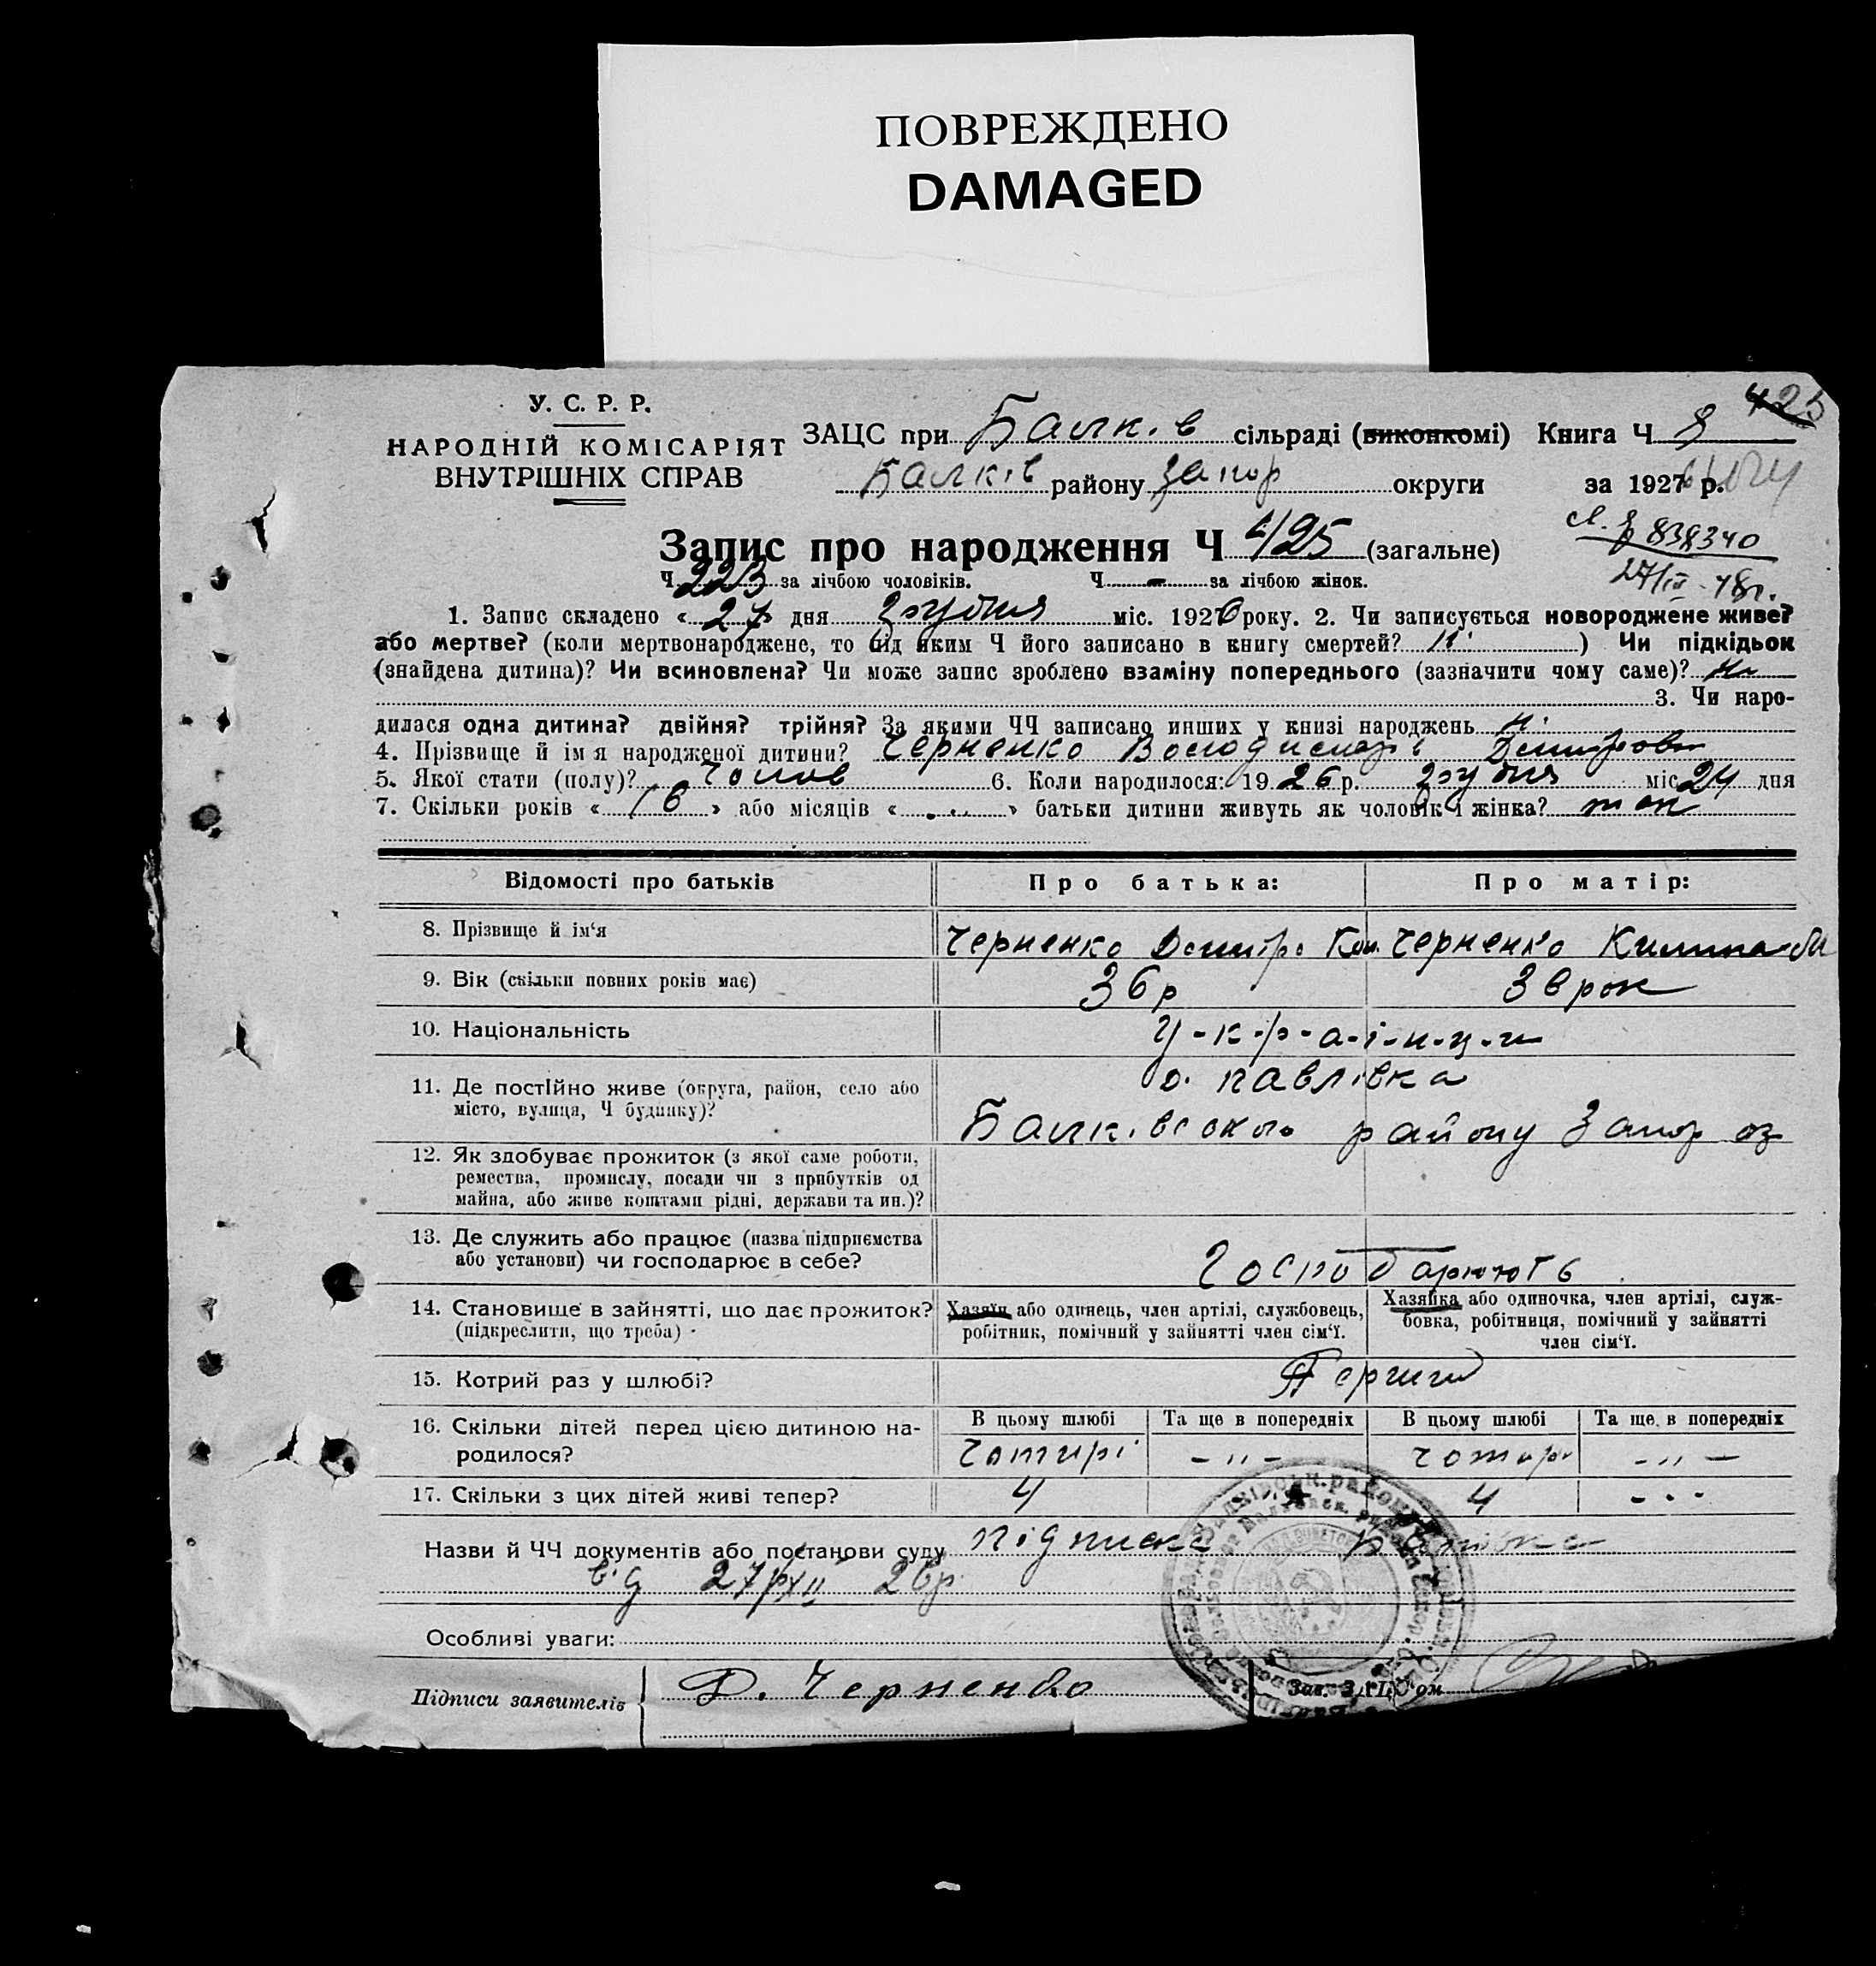 ПОВРЕЖДЕНО
DAMAGED
425
У. С. Р. Р.
НАРОДНІЙ КОМІСАРІЯТ
ВНУТРІШНІХ СПРАВ
ЗАЦС при Балків сільраді (виконкомі) Книга Ч 8
Балків району Запор округи за 1926 р.
Запис про народження Ч 425 (загальне)
838340
Ч 223 за лічбою чоловіків. Ч - за лічбою жінок.
27/IX-48г.
1. Запис складено « 27 » дня грудня міс. 1926 року. 2. Чи записується новороджене живе?
або мертве? (коли мертвонароджене, то під яким Ч його записано в книгу смертей? ні ) Чи підкідьок
(знайдена дитина)? Чи всиновлена? Чи може запис зроблено взаміну попереднього (зазначити чому саме)? ні
3. Чи наро-
дилася одна дитина? двійня? трійня? За якими ЧЧ записано инших у книзі народжень ні
4. Прізвище й ім я народженої дитини? Черненко Володимир Дмитров
5. Якої стати (полу)? чолов 6. Коли народилося: 1926 р. грудня міс 24 дня
7. Скільки років « 16 » або місяців « ... » батьки дитини живуть як чоловік і жінка? так
Відомості про батьків Про батька: Про матір:
8. Прізвище й ім‘я Черненко Дмитро Черненко
9. Вік (скільки повних років має) 36 р 36 рок
10. Національність У-к-р-а-ї-н-ц-и
11. Де постійно живе (округа, район, село або
місто, вулиця, Ч будинку)?
с. Павлівка
Балківського району Запор ок
12. Як здобуває прожиток (з якої саме роботи,
ремества, промислу, посади чи з прибутків од
майна, або живе коштами рідні, держави та ин.)?
13. Де служить або працює (назва підприємства
або установи) чи господарює в себе?
Господарюють
14. Становище в зайнятті, що дає прожиток?
(підкреслити, що треба)
Хазяїн або одинець, член артілі, службовець,
робітник, помічний у зайнятті член сім‘ї.
Хазяйка або одиночка, член артілі, служ-
бовка, робітниця, помічний у зайнятті
член сім‘ї.
15. Котрий раз у шлюбі? Перший
16. Скільки дітей перед цією дитиною на-
родилося?
В цьому шлюбі Та ще в попередніх В цьому шлюбі Та ще в попередніх
Чотирі - „ - чотири - „ -
17. Скільки з цих дітей живі тепер? 4 4 - - -
Назви й ЧЧ документів або постанови суду підписка батька
від 27/XII 26р.
Особливі уваги:
Підписи заявителів Д. Черненко Зав. ЗАЦС‘ом